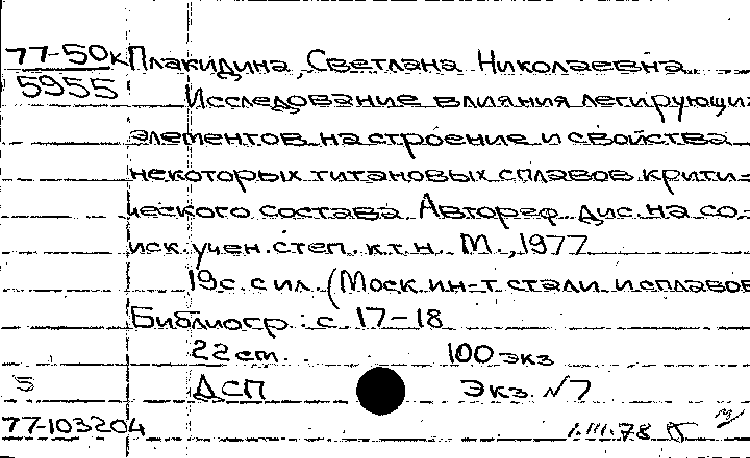 77-50к Плакидина, Светлана Николаевна
5955 Исследование влияния легирующи
элементов на строение и свойства
некоторых титановых сплавов крити-
ческого состава. Автореф. дис. на со-
иск. учен. степ. к.т.н. М., 1977
19с. с ил. (Моск. ин-т стали и сплавов
Библиогр.: с. 17-18
22 см. 100 экз
5 ДСП Экз. №7
77-103204 1.III.78